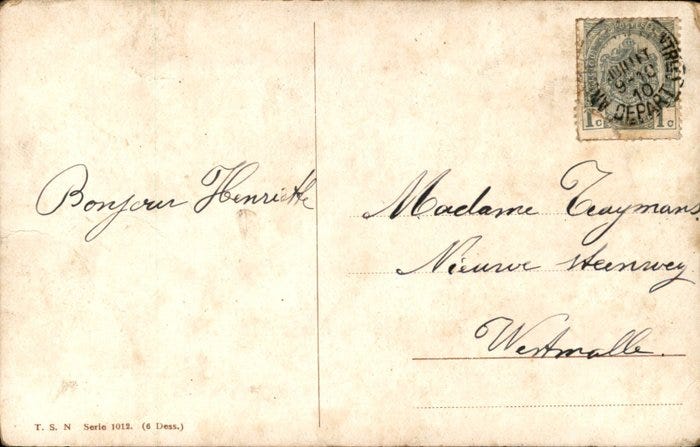 Bonjour Henriette
Madame Taaymans
Nieuwe steenweg
Westmalle.
1c 1c
JUILT
9-10
10
DEPART
T. S. N Serie 1012. (6 Dess.)